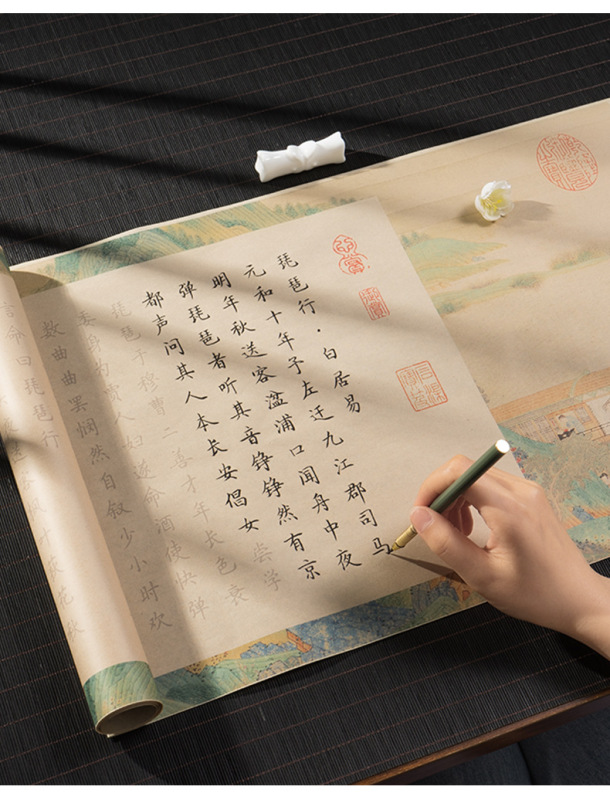 琵琶行·白居易
元和十年予左迁九江郡司马
明年秋送客湓浦口闻舟中夜
弹琵琶者听其音铮铮然有京
都声问其人本长安倡女尝学
琵琶于穆曹二善才年长色衰
委身为贾人妇遂命酒使快弹
数曲曲罢悯然自叙少小时欢
言命曰琵琶行
枫叶荻花秋